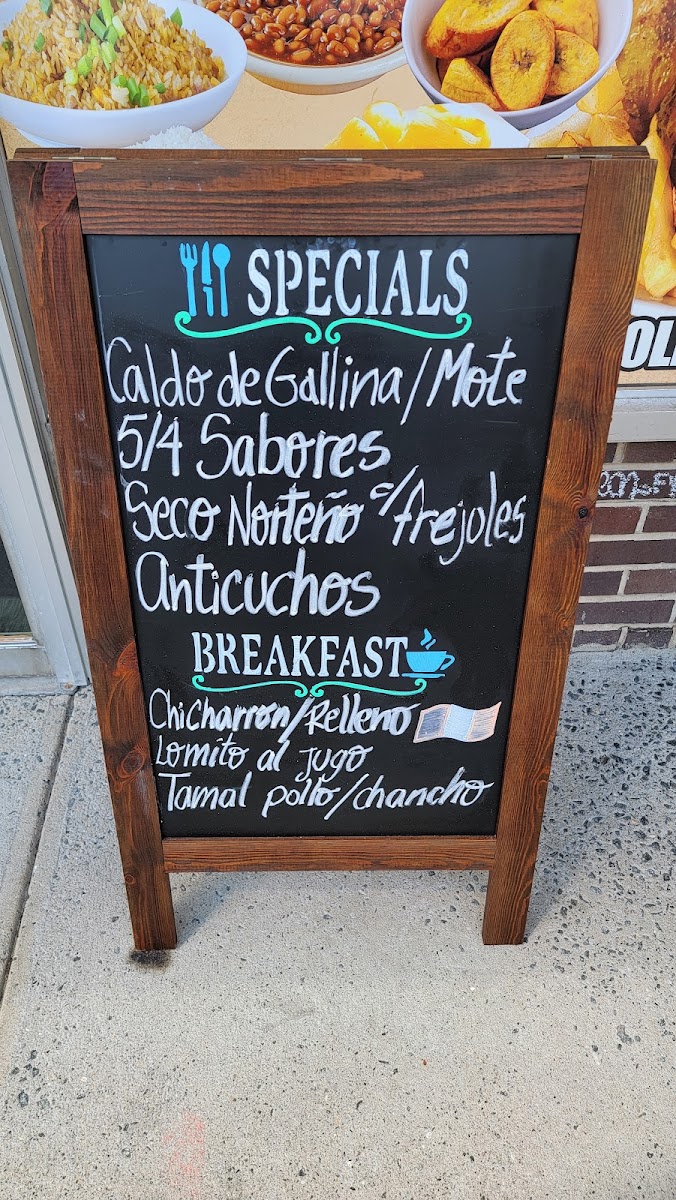 SPECIALS
Caldo de Gallina/Mote
5/4 Sabores
Seco Norteño c/frejoles
Anticuchos
BREAKFAST
Chicharron/Relleno
Lomito al jugo
Tamal pollo/chancho